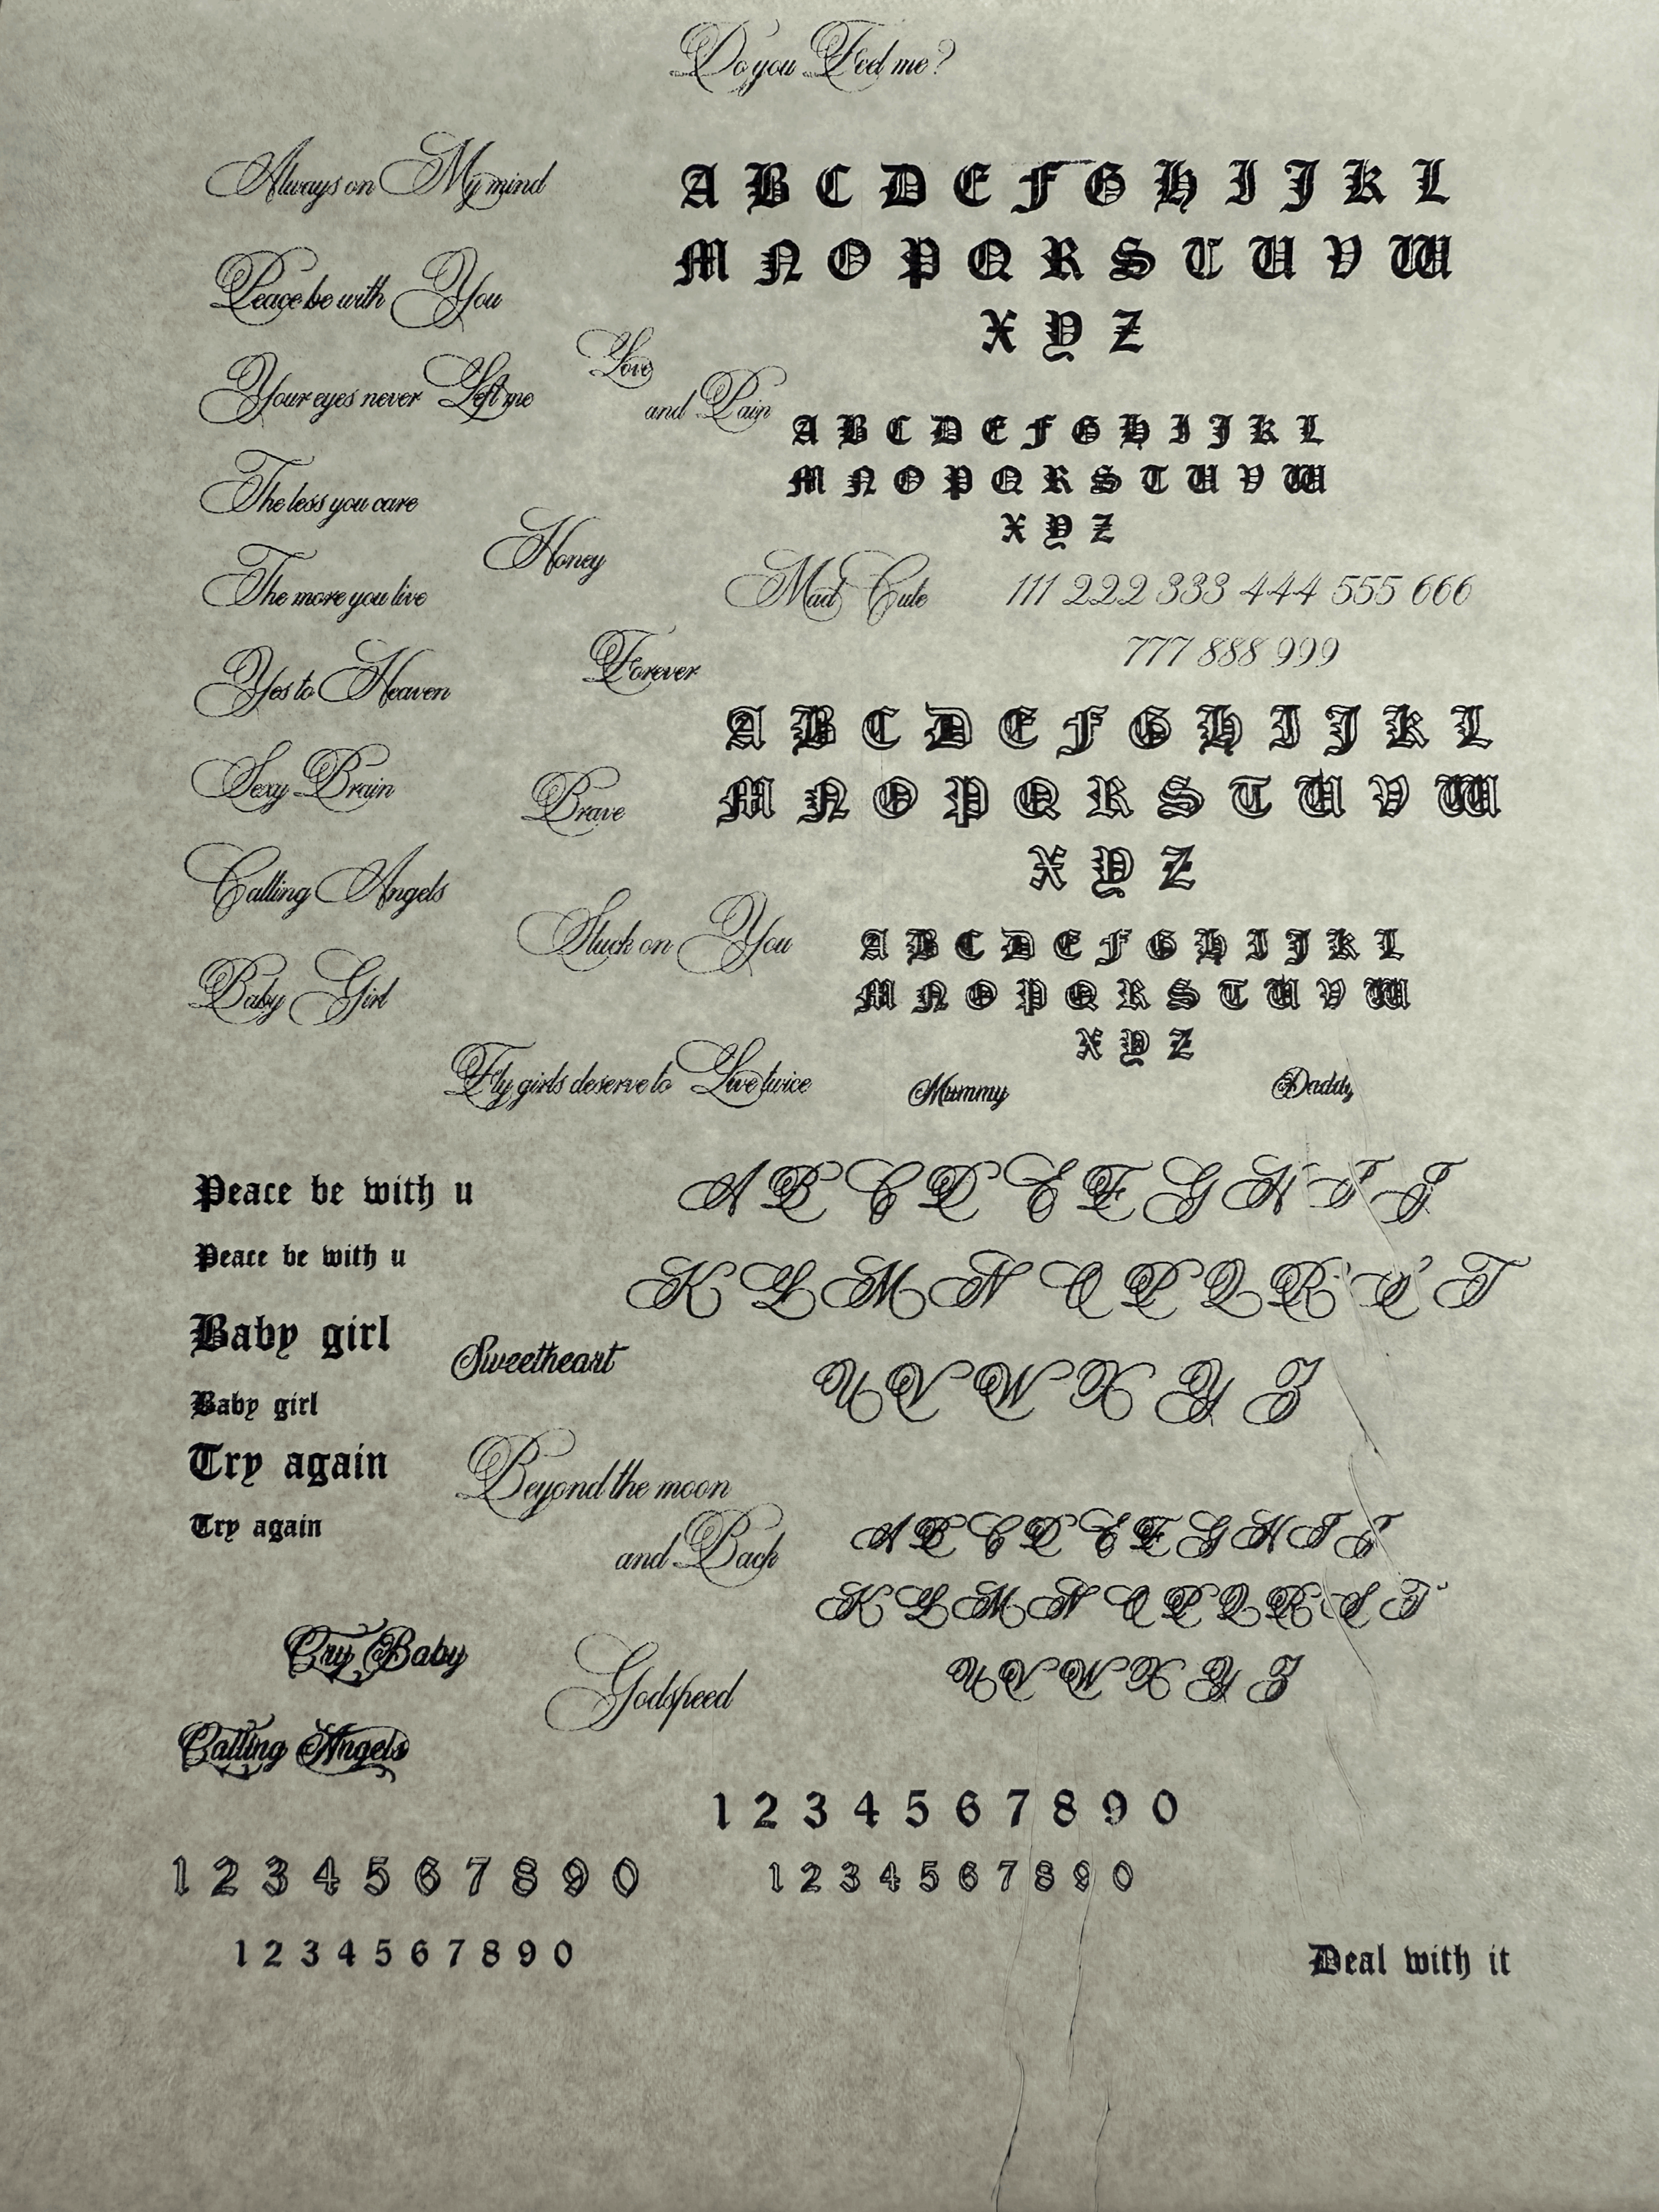 Do you Feel me?
Always on My mind
A B C D E F G H I J K L
M N O P Q R S T U V W
X Y Z
Peace be with You
Love
and Pain
Your eyes never Left me
A B C D E F G H I J K L
M N O P Q R S T U V W
X Y Z
The less you care
Honey
The more you live
Mad Cute
111 222 333 444 555 666
777 888 999
Forever
Yes to Heaven
A B C D E F G H I J K L
M N O P Q R S T U V W
X Y Z
Sexy Brain
Brave
Calling Angels
Stuck on You
A B C D E F G H I J K L
M N O P Q R S T U V W
X Y Z
Baby Girl
Fly girls deserve to Live twice
Mummy
Daddy
Peace be with u
A B C D E F G H I J
Peace be with u
K L M N O P Q R S T
Baby girl
Sweetheart
U V W X Y Z
Baby girl
Try again
Beyond the moon
and Back
Try again
A B C D E F G H I J
K L M N O P Q R S T
U V W X Y Z
Cry Baby
Godspeed
Calling Angels
1 2 3 4 5 6 7 8 9 0
1 2 3 4 5 6 7 8 9 0
1 2 3 4 5 6 7 8 9 0
1 2 3 4 5 6 7 8 9 0
Deal with it